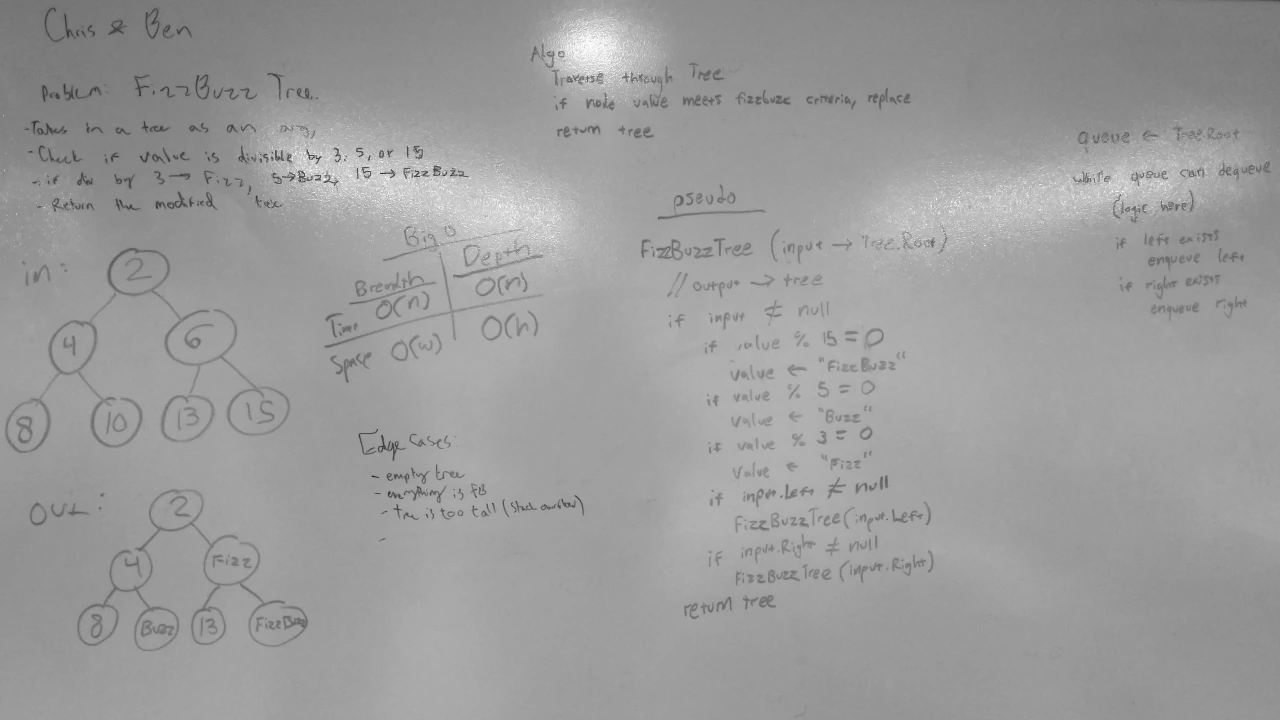 Chris & Ben
Problem: FizzBuzz Tree.
- Takes in a tree as an arg,
- Check if value is divisible by 3, 5, or 15
- if div by 3 → Fizz, 5→Buzz, 15 → FizzBuzz
- Return the modified tree
in:
2
4 6
8 10 13 15
OUT:
2
4 Fizz
8 Buzz 13 FizzBuzz
Big O
Breadth Depth
Time O(n) O(n)
Space O(w) O(h)
Edge Cases:
- empty tree
- everything is FB
- tree is too tall (stack overflow)
-
Algo
Traverse through Tree
if node value meets fizzbuzz criteria, replace
return tree
pseudo
FizzBuzzTree (input → Tree.Root)
// output → tree
if input ≠ null
if value % 15 = 0
value ← "FizzBuzz"
if value % 5 = 0
value ← "Buzz"
if value % 3 = 0
value ← "Fizz"
if input.Left ≠ null
FizzBuzzTree(input.Left)
if input.Right ≠ null
FizzBuzzTree (input.Right)
return tree
queue ← Tree.Root
while queue can dequeue
(logic here)
if left exists
enqueue left
if right exists
enqueue right